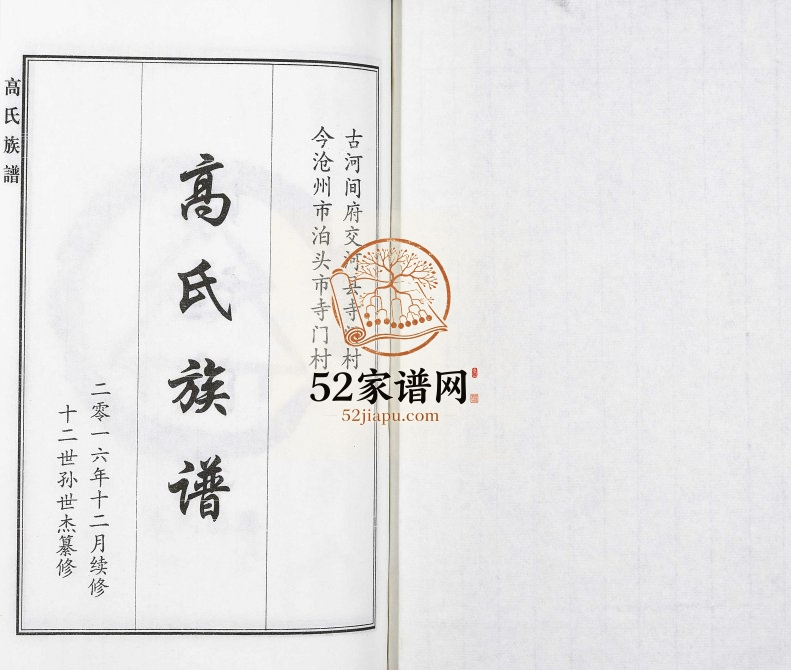 古河间府交河县寺门村
今沧州市泊头市寺门村
高氏族谱
二零一六年十二月续修
十二世孙世杰纂修
高氏族譜
52家谱网
52jiapu.com